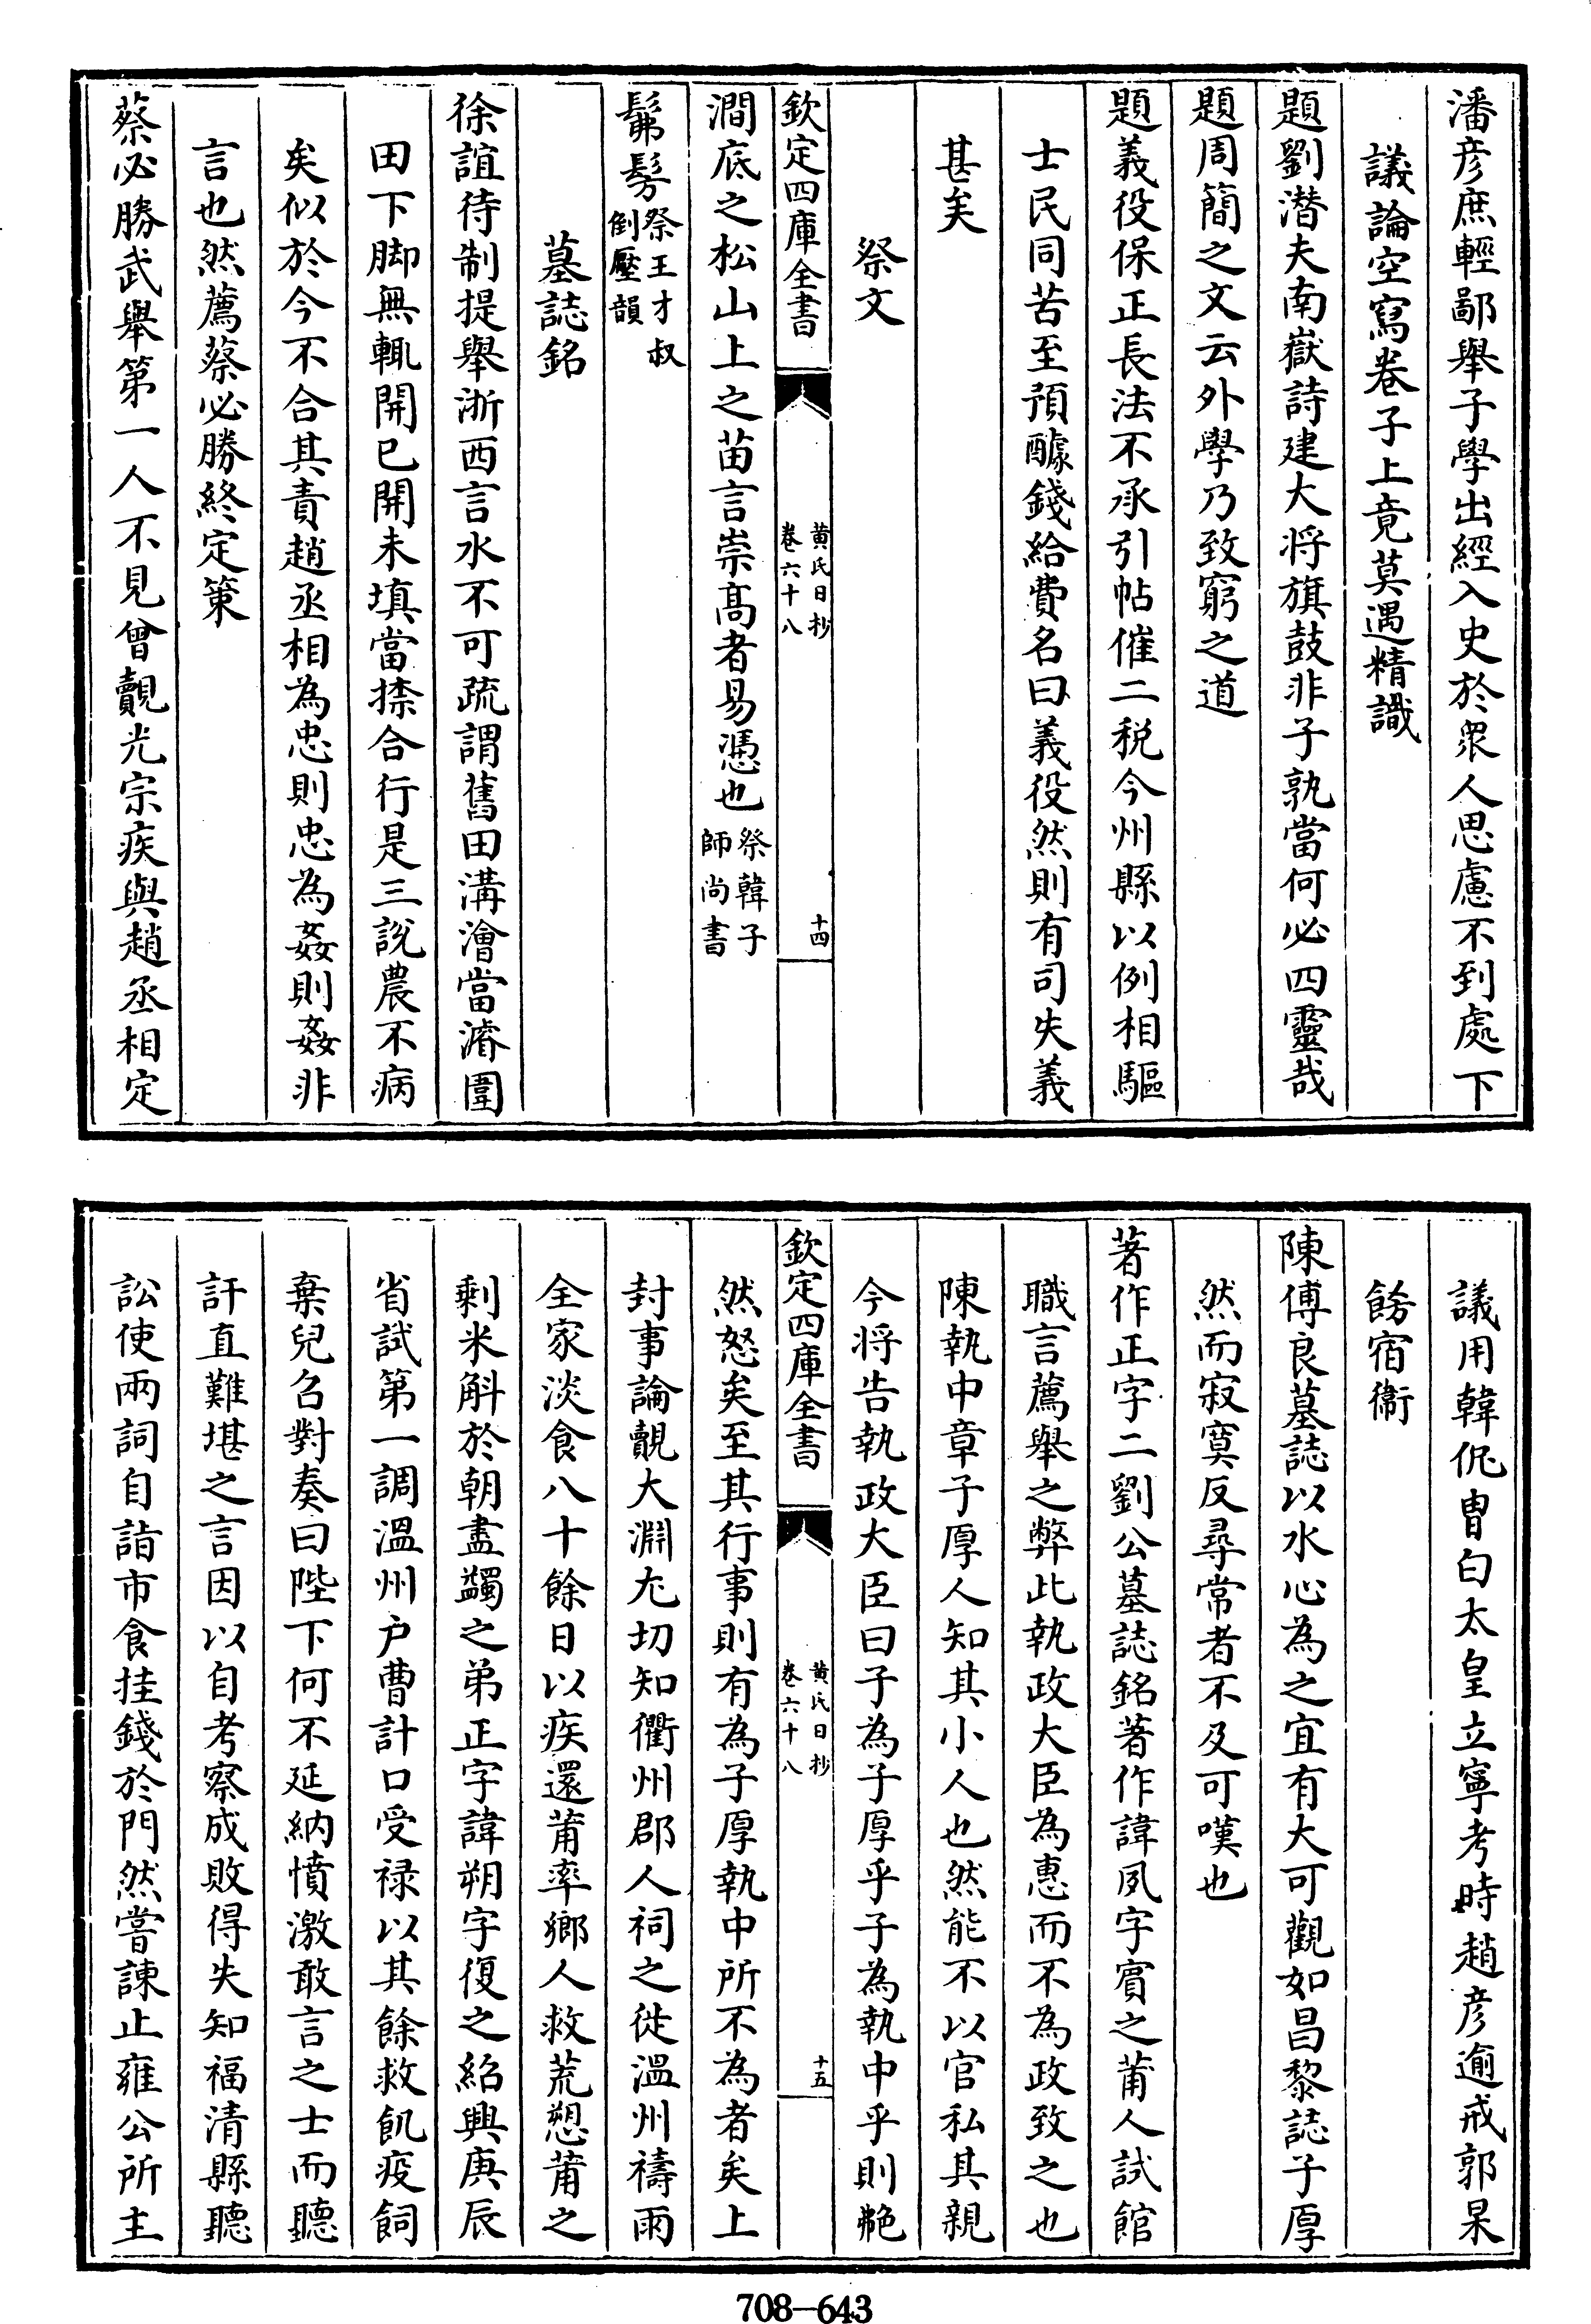 潘彥庶輕鄙舉子學出經入史於眾人思慮不到處下
議論空寫卷子上竟莫遇精識
題劉潜夫南嶽詩建大將旗鼓非子孰當何必四靈哉
題周簡之文云外學乃致窮之道
題義役保正長法不承引帖催二税今州縣以例相驅
士民同苦至預醵錢給費名曰義役然則有司失義
甚矣
祭文
欽定四庫全書
黄氏日抄
卷六十八
十四
澗底之松山上之苗言崇高者易憑也祭韓子師尚書
髴髣祭王才叔倒壓韻
墓誌銘
徐誼待制提舉浙西言水不可疏謂舊田溝澮當濬圍
田下脚無輒開已開未填當捺合行是三說農不病
矣似於今不合其責趙丞相為忠則忠為姦則姦非
言也然薦蔡必勝終定策
蔡必勝武舉第一人不見曾觀光宗疾與趙丞相定
議用韓侂胄白太皇立寧考時趙彥逾戒郭杲
飭宿衞
陳傅良墓誌以水心為之宜有大可觀如昌黎誌子厚
然而寂寞反尋常者不及可嘆也
著作正字二劉公墓誌銘著作諱夙字賔之莆人試館
職言薦舉之弊此執政大臣為惠而不為政致之也
陳執中章子厚人知其小人也然能不以官私其親
今将告執政大臣曰子為子厚乎子為執中乎則艴
欽定四庫全書
黄氏日抄
卷六十八
十五
然怒矣至其行事則有為子厚執中所不為者矣上
封事論覿大淵尤切知衢州郡人祠之徙溫州禱雨
全家淡食八十餘日以疾還莆率鄉人救荒愬莆之
剩米斛於朝盡蠲之弟正字諱朔字復之紹興庚辰
省試第一調溫州户曹計口受禄以其餘救飢疫飼
棄兒召對奏曰陛下何不延納憤激敢言之士而聽
訐直難堪之言因以自考察成敗得失知福清縣聽
訟使兩詞自詣市食挂錢於門然嘗諫止雍公所主
708-643